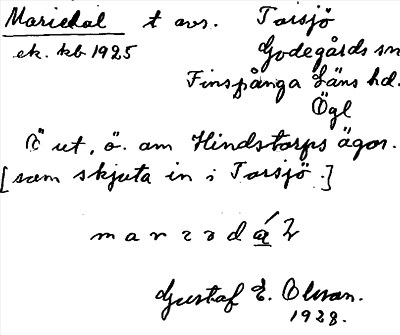 Mariedal t avs. Torsjö
ek. kb 1925 Godegårds sn
Finspånga Läns hd.
Ögl
ut, ö. om Hindstorps ägor.
[som skjuta in i Torsjö.]
Gustaf E. Olsson.
1928.